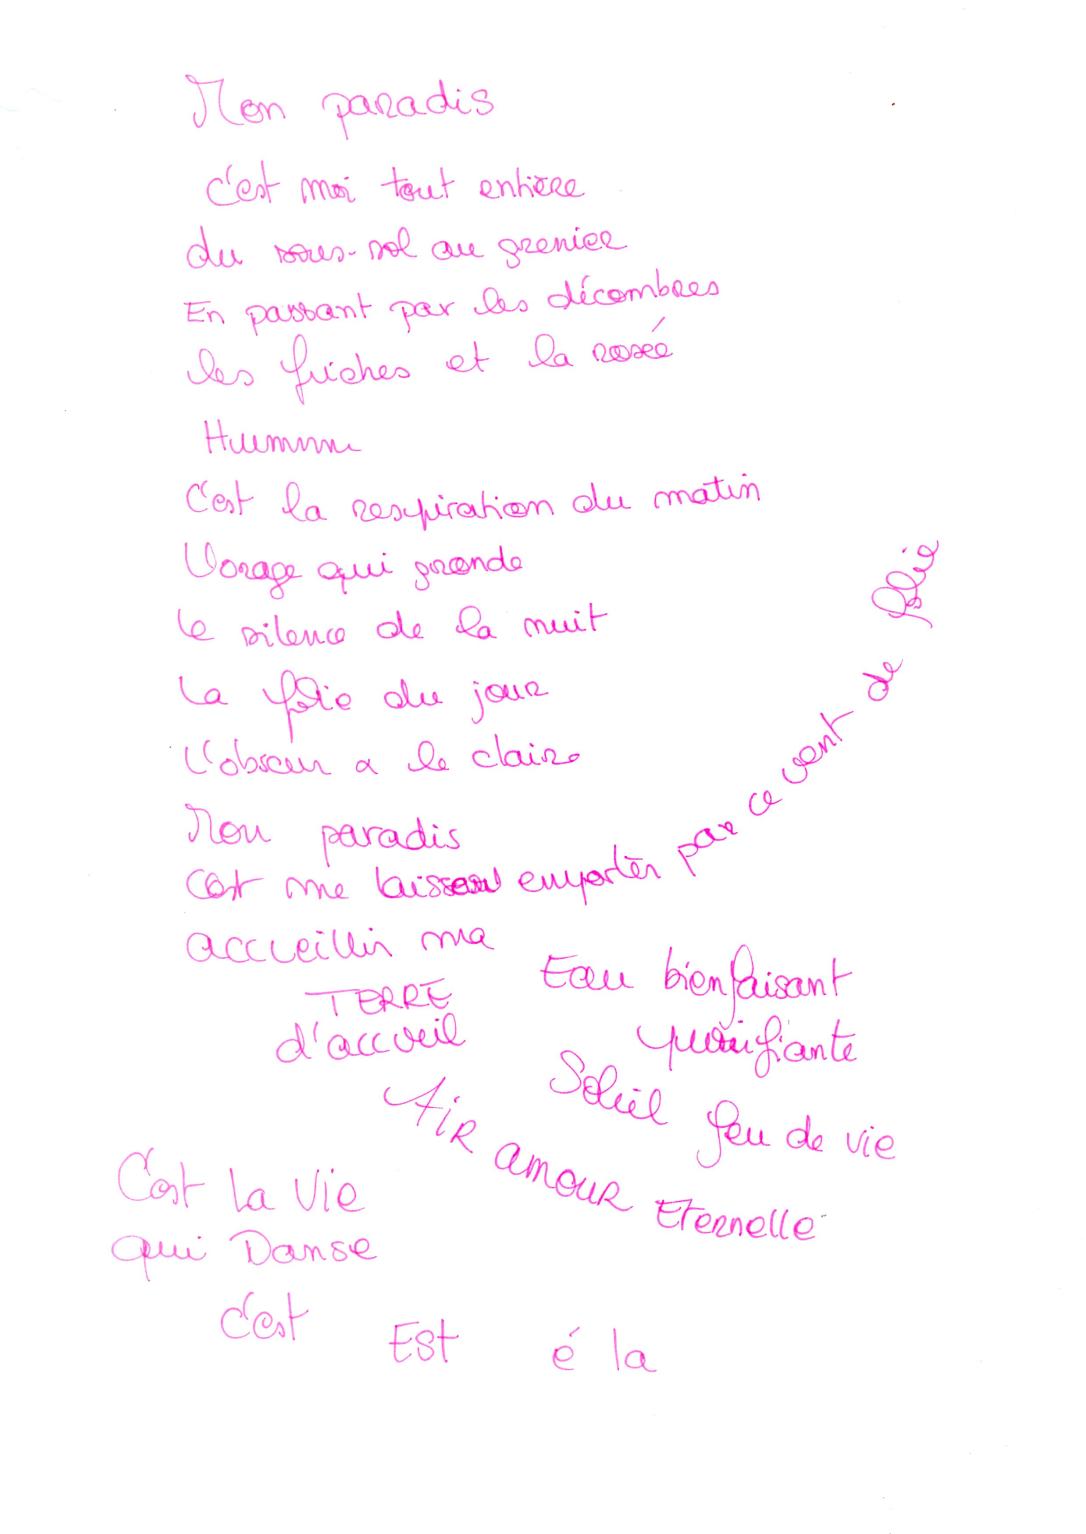 Mon paradis
c'est moi tout entière
du sous-sol au grenier
En passant par les décombres
les friches et la rosée
Hummm
C'est la respiration du matin
L'orage qui gronde
le silence de la nuit
La folie du jour
L'obscur a le claire
Mon paradis
C'est me laisser emporter par ce vent de folie
accueillir ma
TERRE
d'accueil
Eau bienfaisant
purifiante
Soleil feu de vie
AiR amour Eternelle
C'est La Vie
qui Danse
c'est Est é la